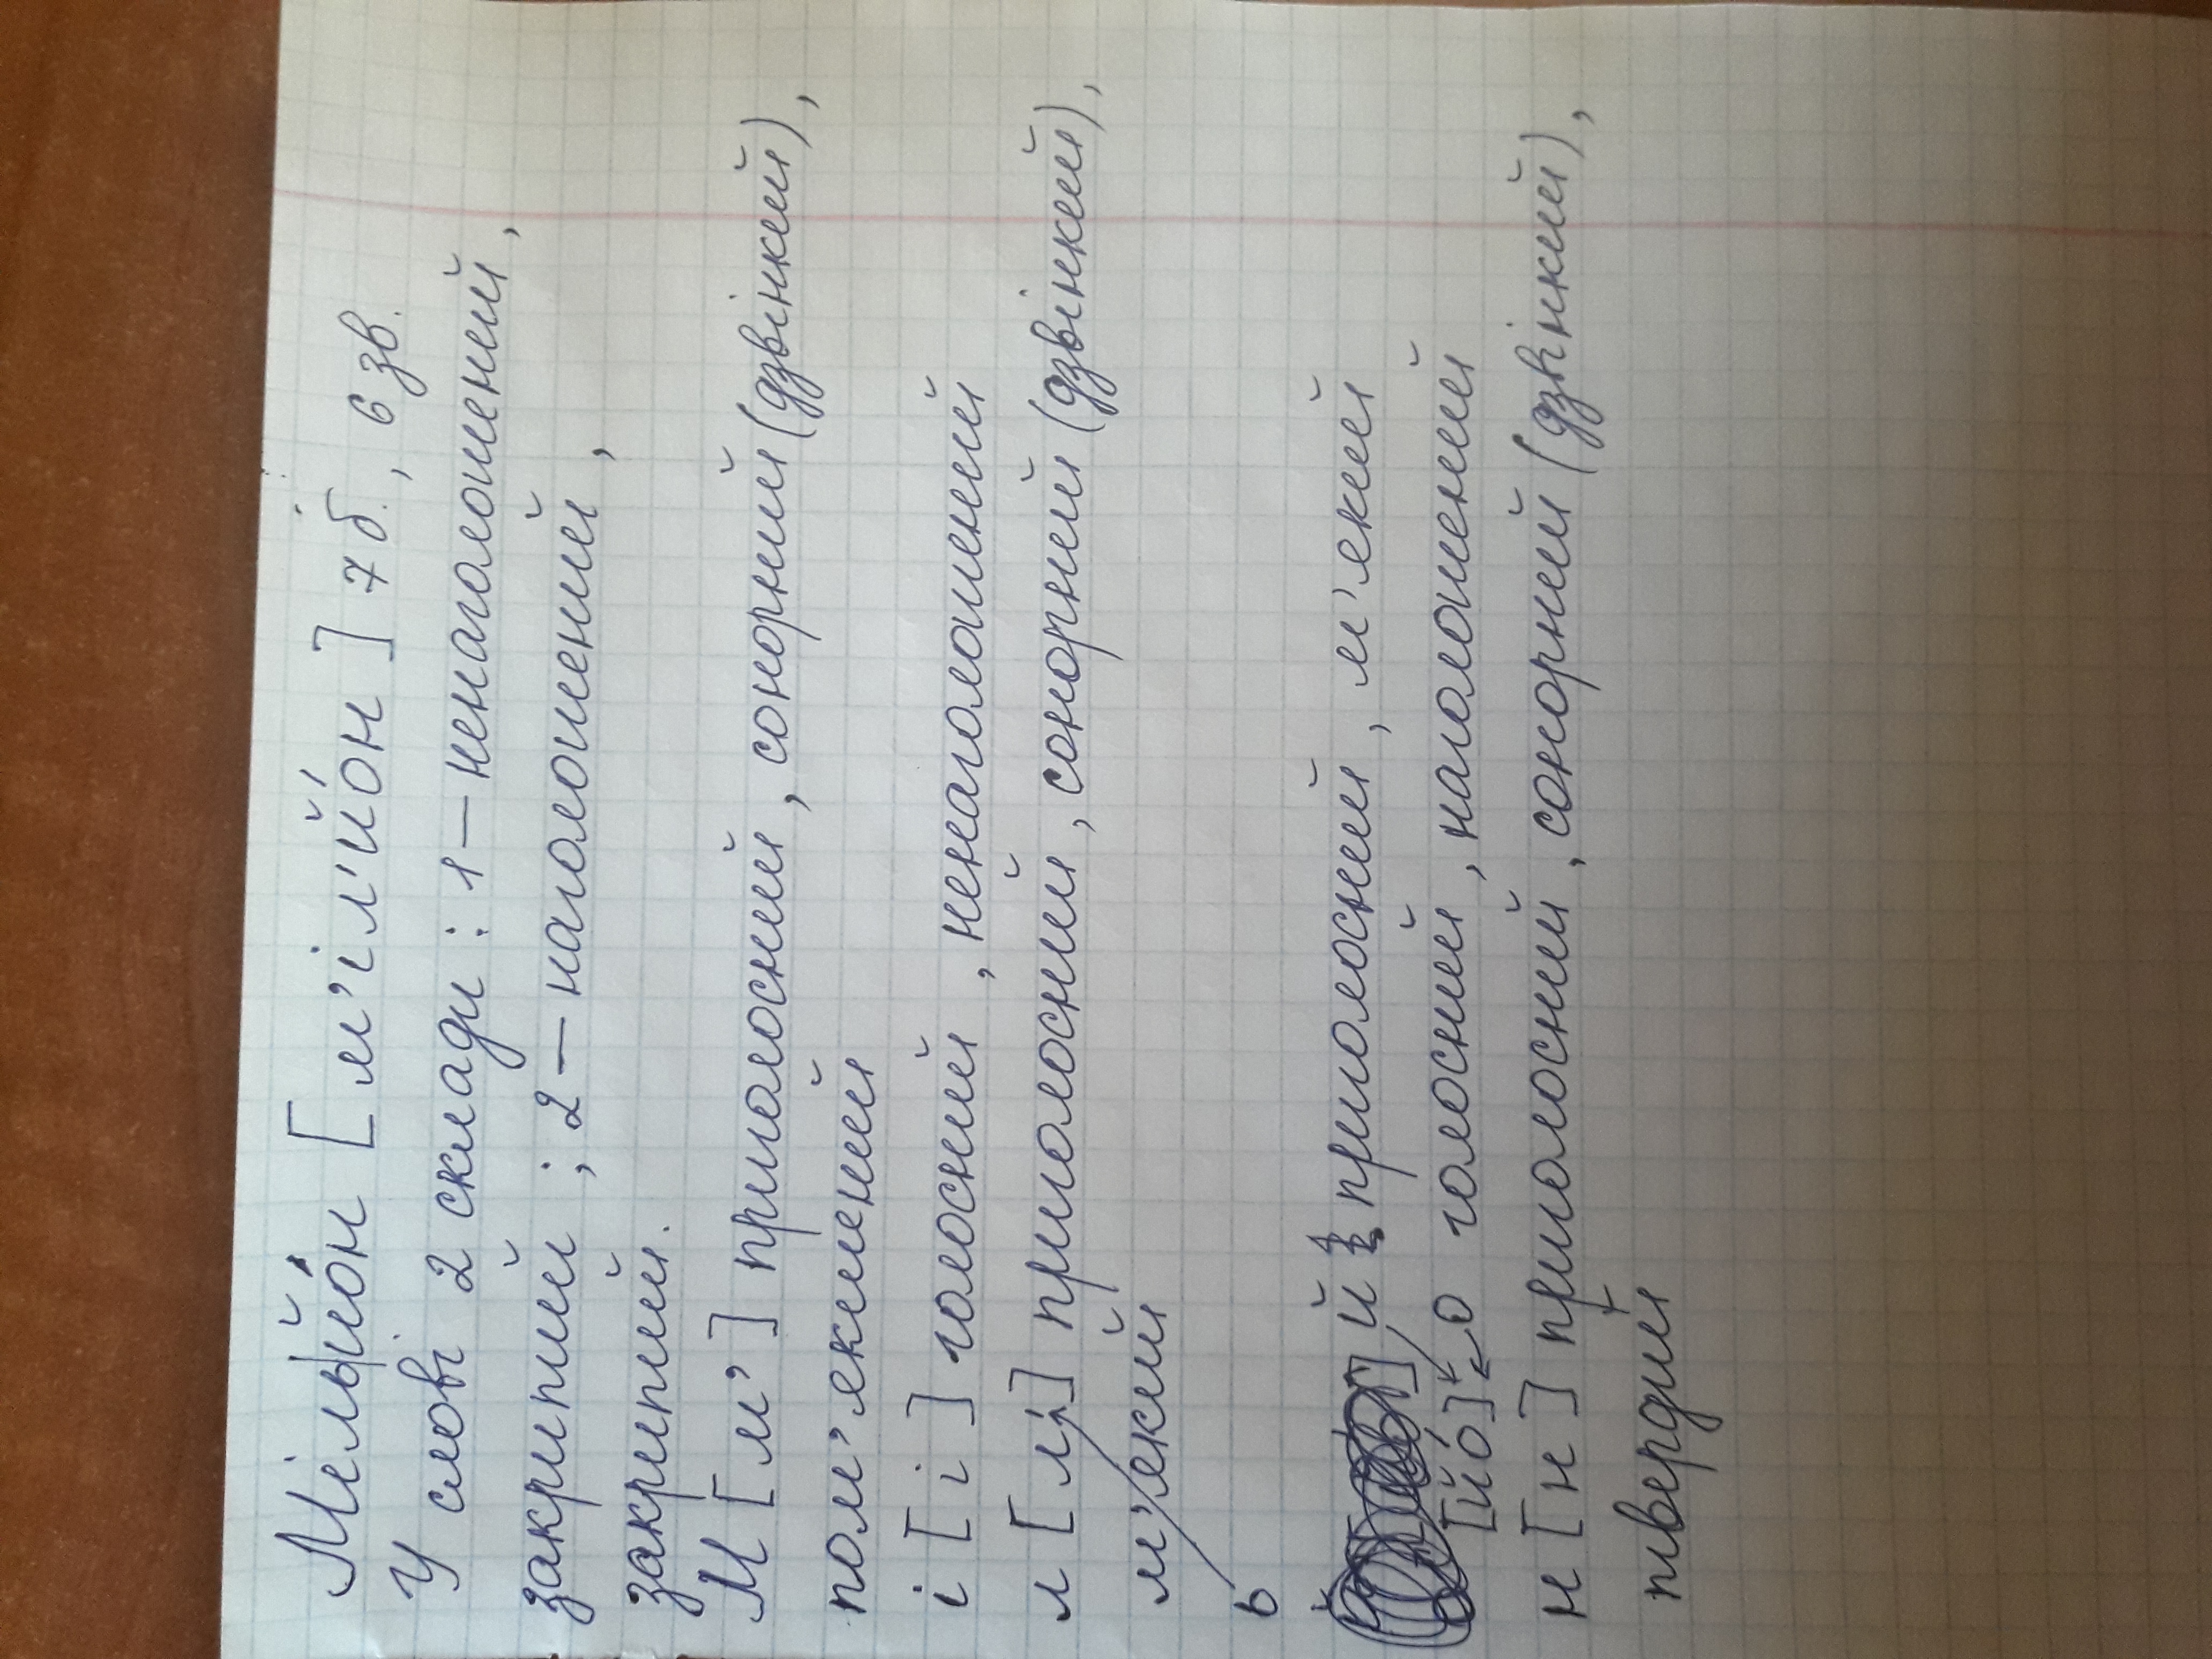 Мільйо́н [м'іл'йо́н] 7 б., 6 зв.
У слові 2 склади: 1 – ненаголошений,
закритий; 2 – наголошений,
закритий.
М [м'] приголосний, сонорний (дзвінкий),
пом'якшений
і [і] голосний, ненаголошений
л [л'] приголосний, сонорний (дзвінкий),
м'який
ь
й приголосний, м'який
[йо́] о голосний, наголошений
н [н] приголосний, сонорний (дзвінкий),
твердий